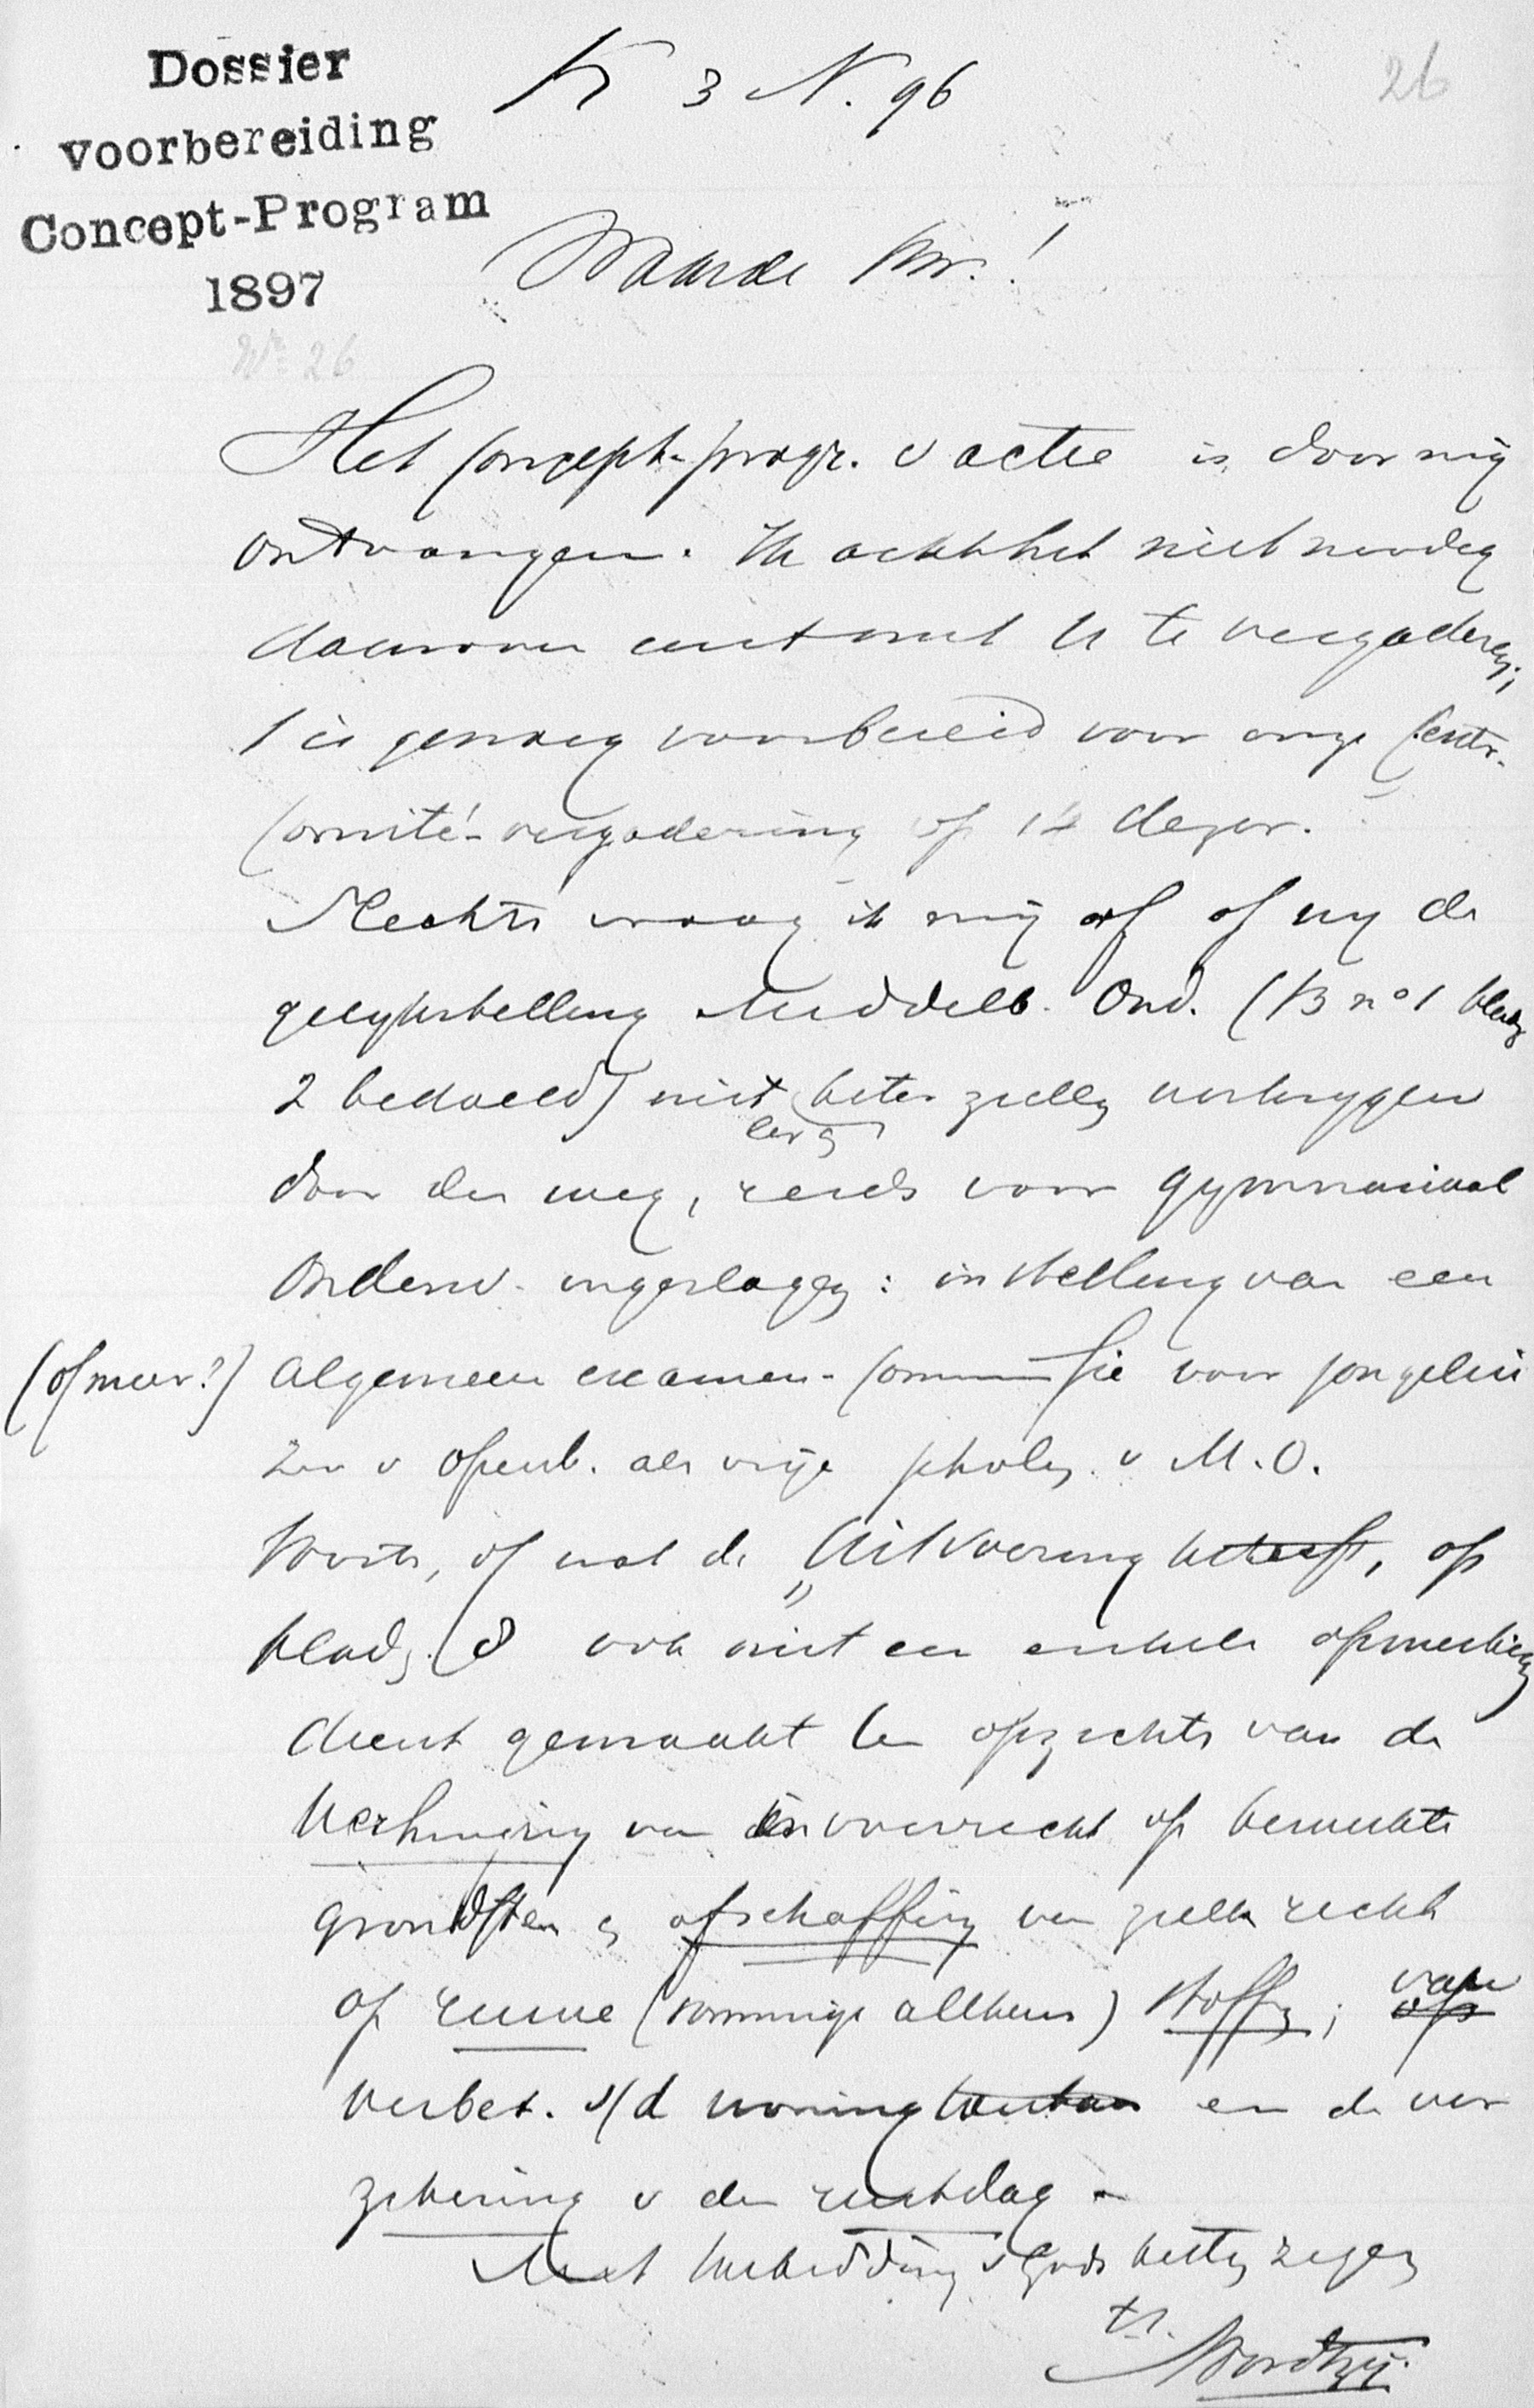 Dossier
voorbereiding
Concept-Program
1897
No 26
K 3 N. 96
26
Waarde Br.!
Het Concept-progr. v actie is door mij
ontvangen. Ik acht het niet noodig
daarover eerst met U te vergaderen;
't is genoeg voorbereid voor onze Centr.
Comité-vergadering op 12 dezer.
Slechts vraag ik mij af of wij de
gelijkstelling Middelb. Ond. (B no 1 bladz
2 bedoeld) niet beter zullen verkrijgen
door den weg, reeds voor gymnasiaal
Onderw. ingeslagen: instelling van een
(of meer?) algemeen examen-commissie voor jongelui
zoo v openb. als vrije scholen v M.O.
Voorts, of wat de „Uitvoering betreft, op
bladz. 8 ook niet een enkele opmerking
dient gemaakt ten opzichte van de
verhooging van invoerrecht op bewerkte
grondstoffen en afschaffing van zulk recht
op ruwe (sommige althans) stoffen; van
verbet. v/d woning en de ver
zekering v den rustdag.
Met toebidding v Gods besten zegen
tt.
Noordtzij.